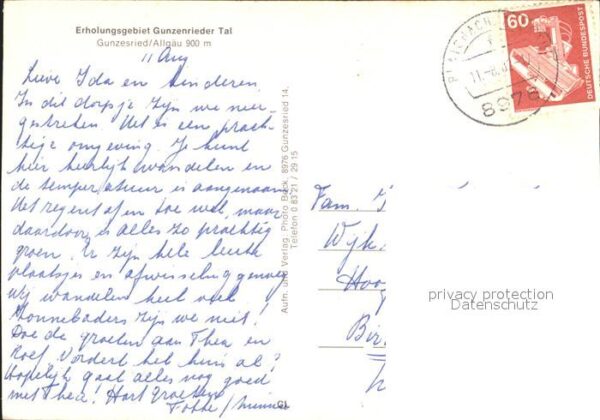 Erholungsgebiet Gunzenrieder Tal
Gunzesried/Allgäu 900 m
11 Aug
Lieve Ida en kinderen.
In dit dorpsje zijn we neer-
gestreken. Het is een prach-
tige omgeving. Je kunt
hier heerlijk wandelen en
de temperatuur is aangenaam
Het regent af en toe wel, maar
daardoor is alles zo prachtig
groen. Er zijn hele leuke
plaatsjes en afwisseling genoeg
Wij wandelen heel veel
Zonnebaders zijn we niet!
Doe de groeten aan Thea en
Roef. Vordert het huis al?
Hopelijk gaat alles nog goed
met Thea. Hart. Groeten
Aufn. und Verlag: Photo Beck, 8976 Gunzesried 14,
Telefon 0 83 21 / 29 15
60
DEUTSCHE BUNDESPOST
8976
Fam.
Wijk
Hoo
Bir
privacy protection
Datenschutz